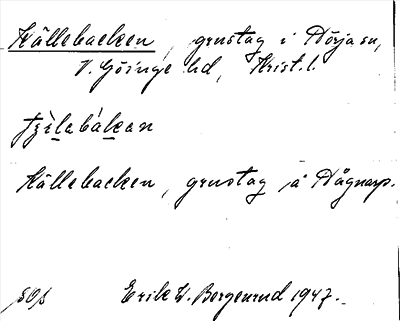 Källebacken, grustag i Nörja sn,
V. Göinge hd, Krist. l.
tjz̀ilabákan
Källebacken, grustag å Dågnarp.
Erik W. Bergenrud 1947.